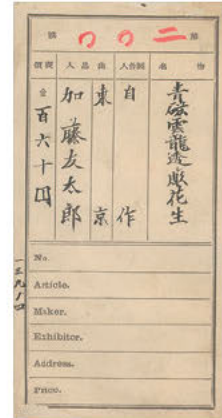 第二〇〇號
物名
青磁雲龍透彫花生
自作
出品人
東京
加藤友太郎
金百六十円
No.
Article.
Maker.
Exhibitor.
Address.
Price.